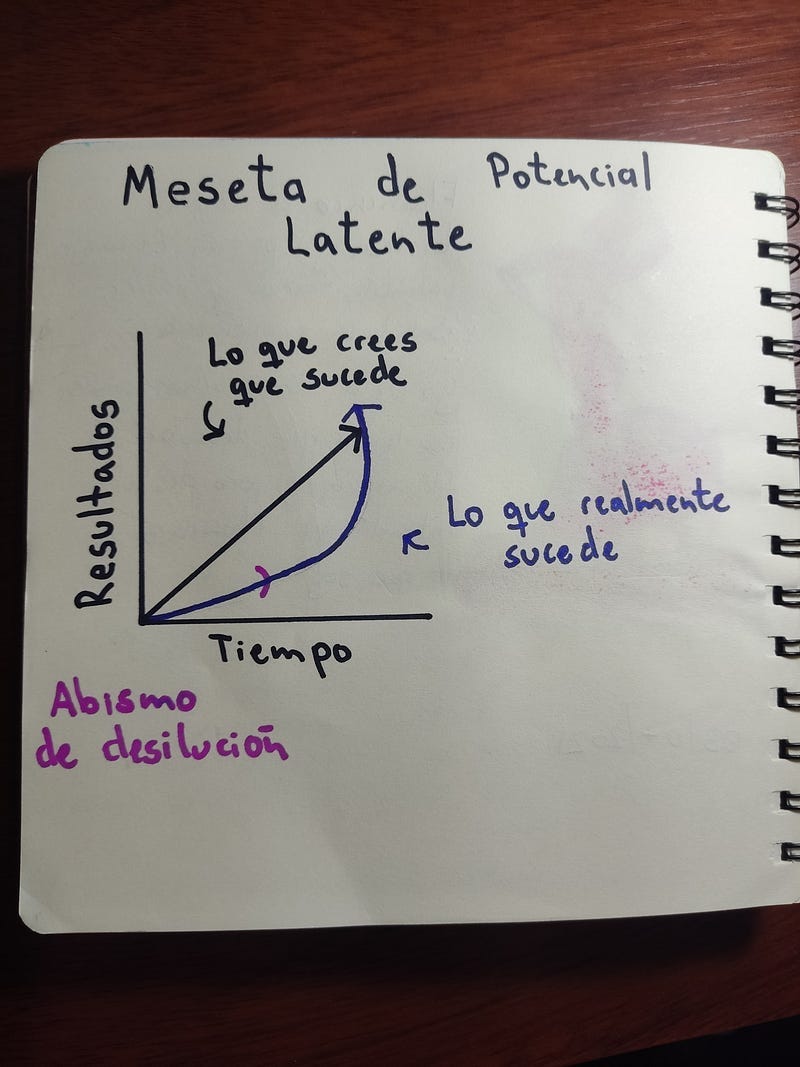 Meseta de Potencial
Latente
Lo que crees
que sucede
Resultados
Lo que realmente
sucede
Tiempo
Abismo
de desilución